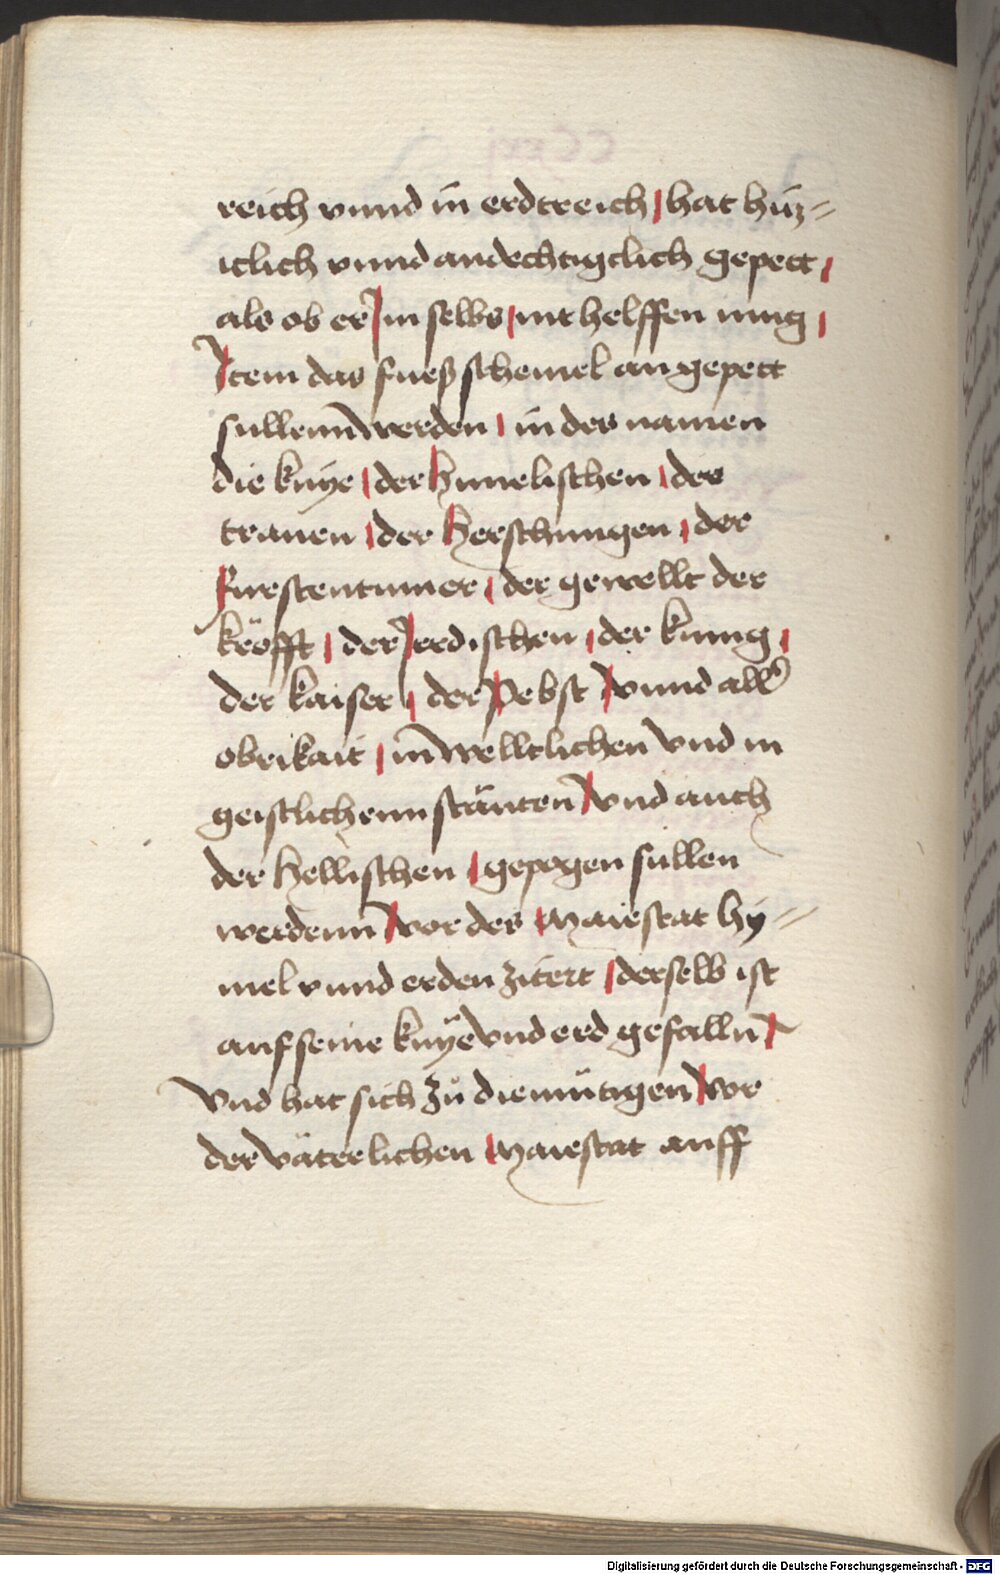 reich vnnd in erdtreich / hat hitz=
iclich vnnd andechtigclich gepett /
als ob er Im selbs / nit helffen mug /
Item das fueß schemel an gepett
sullenn werden / in des namen
die knÿe / der himelischen / der
tranen / der herschungen / der
furstentumer / der gewellt der
kröfft / der Jerdischen / der kunig /
der kaiser / der Pebst / vnnd all
obrikait / in welltlichen vnd in
geistlichenn stänten / vnd auch
der hellischen / gepogen sullen
werdenn / vor des Maiestat hÿ=
mel vnnd erden zitert / derselb ist
auf seine knÿe vnd erd gefallñ /
Vnd hat sich zů diemütigen / vor
der väterlichen Maiestat auff
Digitalisierung gefördert durch die Deutsche Forschungsgemeinschaft - DFG